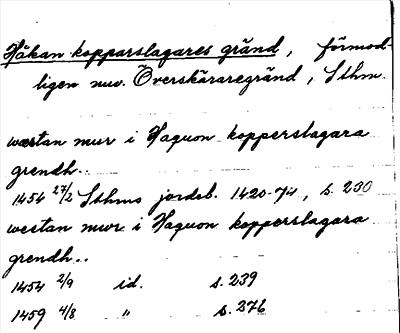 Håkan kopparslagares gränd, förmod-
ligen nuv. Överskäraregränd, Sthm.
westan mur i Haquon kopperslagara
grendh..
1454 27/2 Sthms jordeb. 1420-74, s. 230
westan mur i Haquon kopperslagara
grendh..
1454 2/9 id. s. 239
1459 4/8 " s. 276